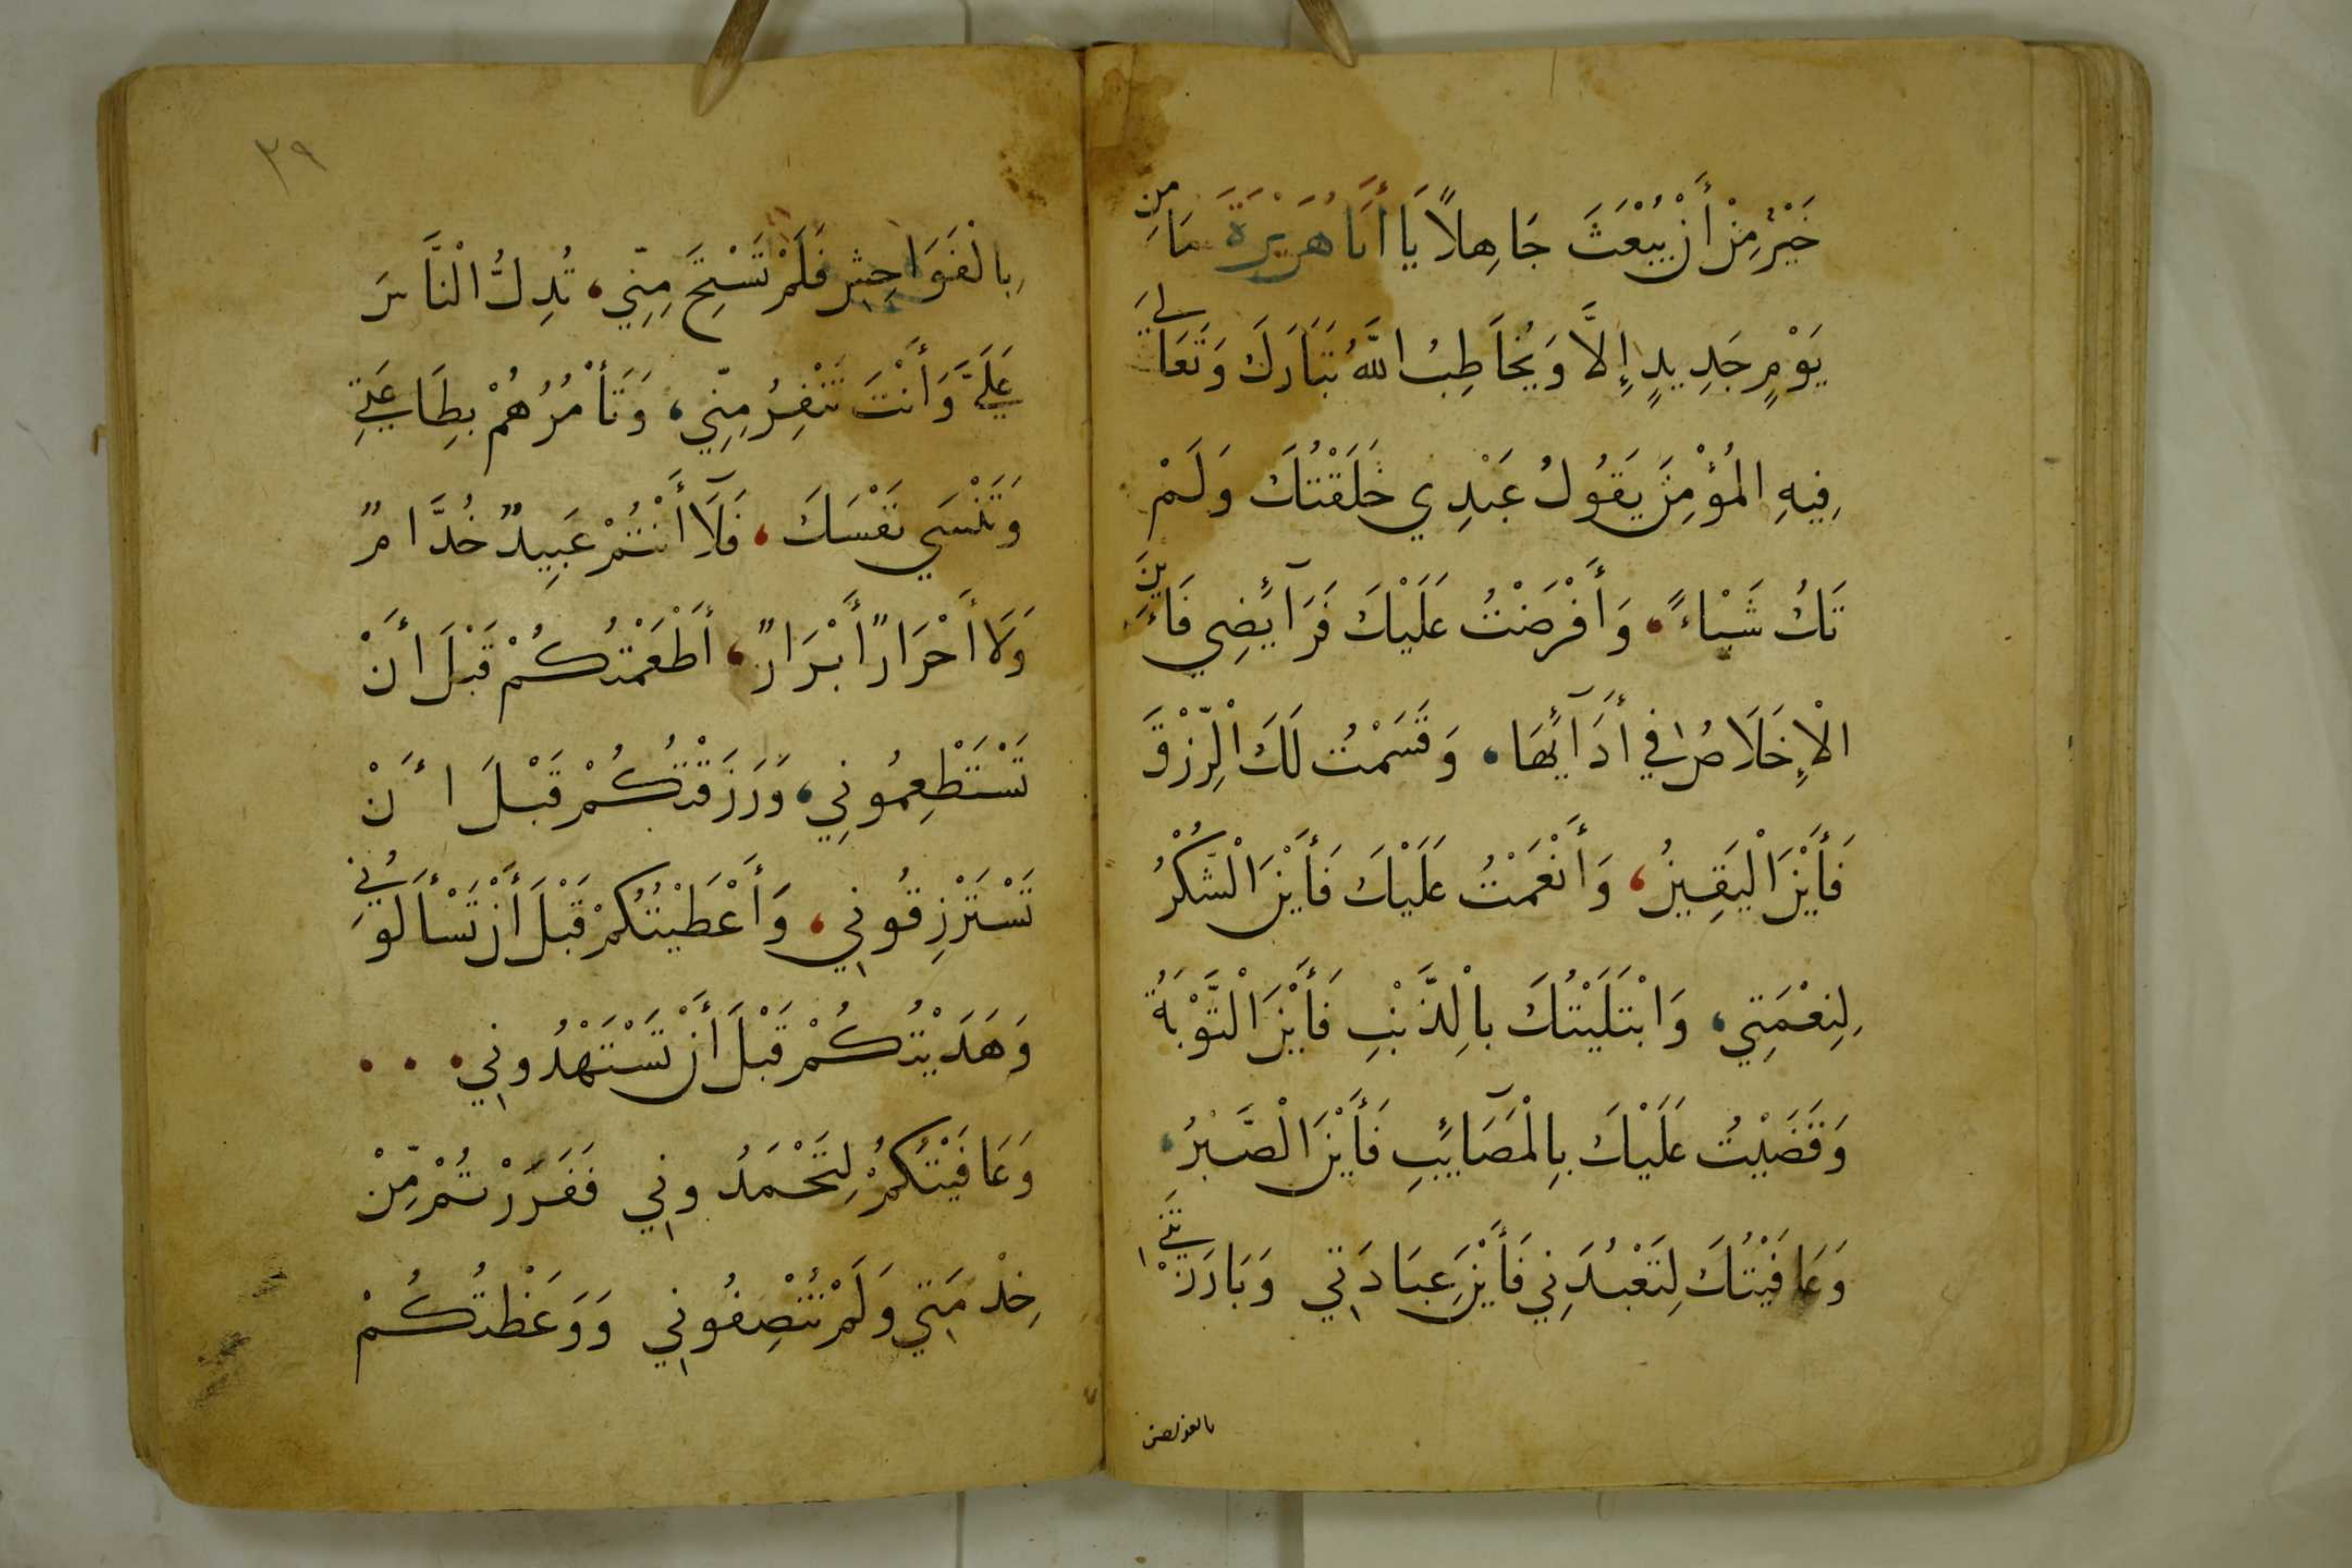 خَيْرٌ مِنْ أَنْ يُبْعَثَ جَاهِلًا يَا أَبَا هُرَيْرَةَ مَا مِنْ
يَوْمٍ جَدِيدٍ إِلَّا وَيُخَاطِبُ اللَّهُ تَبَارَكَ وَتَعَالَى
فِيهِ الْمُؤْمِنَ يَقُولُ عَبْدِي خَلَقْتُكَ وَلَمْ
تَكُ شَيْاءً، وَأَفْرَضْتُ عَلَيْكَ فَرَآئِضِي فَأَيْنَ
الْإِخَلَاصُ فِي أَدَآئِهَا، وَقَسَمْتُ لَكَ الْرِّزْقَ
فَأَيْنَ الْيَقِينُ، وَأَنْعَمْتُ عَلَيْكَ فَأَيْنَ الْشُّكْرُ
لِنِعْمَتِي، وَابْتَلَيْتُكَ بِالْذَّنْبِ فَأَيْنَ الْتَّوْبَةُ
وَقَضَيْتُ عَلَيْكَ بِالْمَصَآئِبِ فَأَيْنَ الْصَّبْرُ،
وَعَافَيْتُكَ لِتَعْبُدَنِي فَأَيْنَ عِبَادَتِي وَبَارَزْتَنِي
بالفواحش
٢٩
بِالْفَوَاحِشِ فَلَمْ تَسْتَحِ مِنِّي، تُدِلُّ الْنَّاسَ
عَلَيَّ وَأَنْتَ تَنْفِرُ مِنِّي، وَتَأْمُرُهُمْ بِطَاعَتِي
وَتَنْسَي نَفْسَكَ، فَلَآ أَنْتُمْ عَبِيدٌ خُدَّامٌ
وَلَا أَحْرَارٌ أَبْرَارٌ، أَطْعَمْتُكُمْ قَبْلَ أَنْ
تَسْتَطْعِمُونِي، وَرَزَقْتُكُمْ قَبْلَ أَنْ
تَسْتَرْزِقُونِي، وَأَعْطَيْتُكُمْ قَبْلَ أَنْ تَسْأَلُونِي
وَهَدَيْتُكُمْ قَبْلَ أَنْ تَسْتَهْدُونِي . . .
وَعَافَيْتُكُمْ لِتَحْمَدُونِي فَفَرَرْتُمْ مِّنْ
خِدْمَتِي وَلَمْ تُنْصِفُونِي وَوَعَظْتُكُمْ